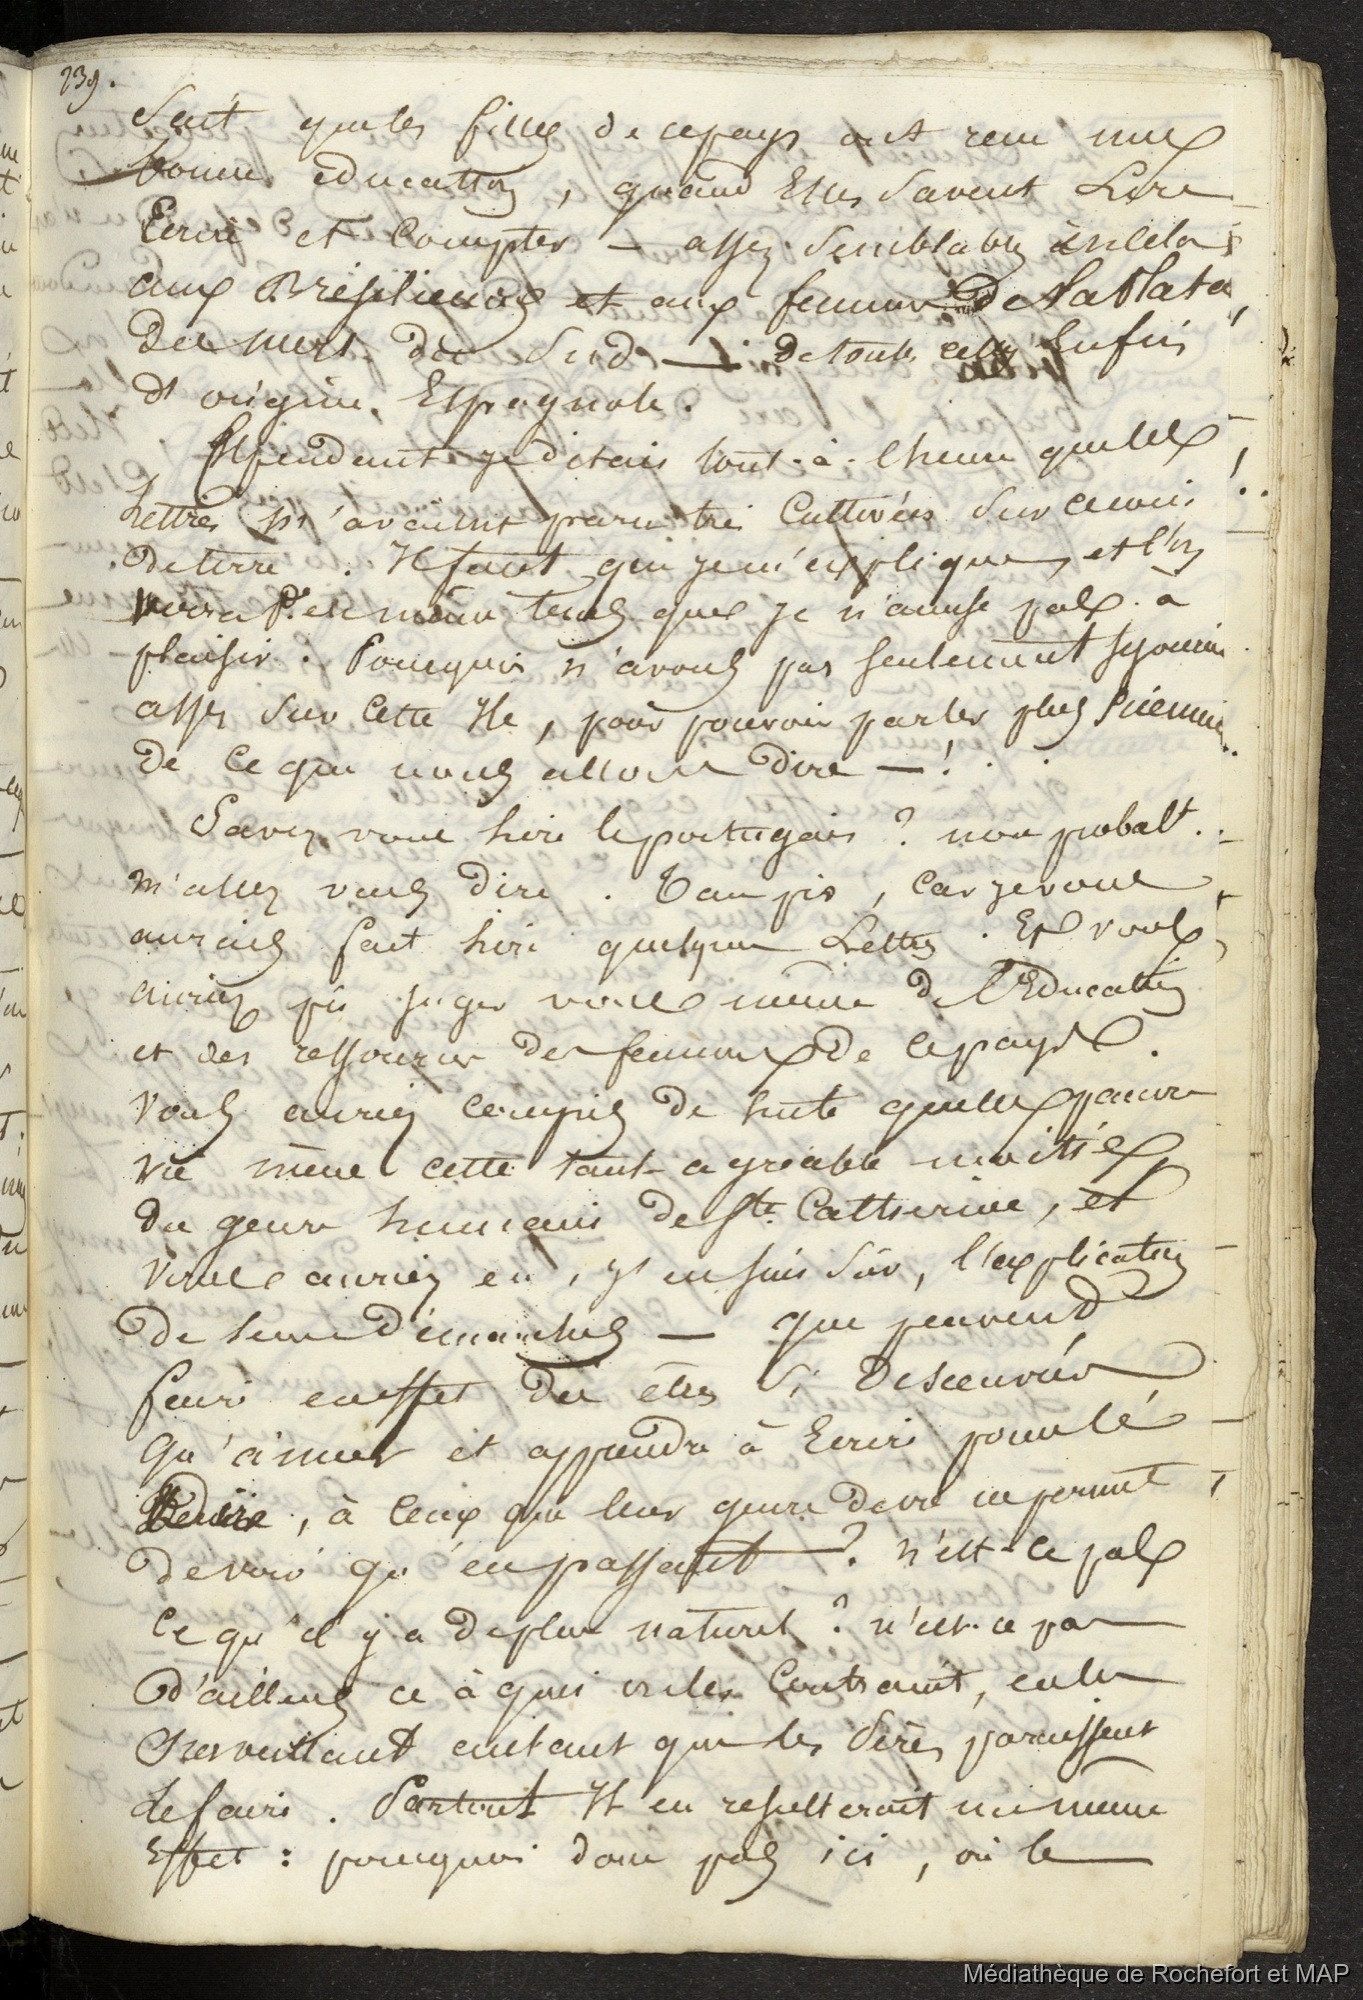 239.
Sent que les filles de ce pays ont recu une
bonne éducation, quand Elles savent Lire
Ecrire et Compter — assez semblables en cela
aux Brésiliennes et aux femmes de La Plata,
des mers du Sud — de toutes celles Enfin
d'origine Espagnole.
Cependant je disais tout-à-l'heure que les
Lettres m'avaient paru très Cultivées sur ce coin
de terre. Il faut que je m'explique, et l'on
verra en même tems que je n'accuse pas à
plaisir. Pourquoi n'avons pas seulement séjourné
assez sur cette Ile, pour pouvoir parler plus sciemment
de ce que nous allons dire —!..
Savez vous lire le portugais? non probabt.
m'allez vous dire. Tant pis, car je vous
aurais fait lire quelques Lettres. Et vous
auriez pû juger vous même de l'Education
et des ressources des femmes de ce pays.
Vous auriez compris de suite quelle pauvre
vie mène cette tant agréable moitié
du genre humain de Ste. Catherine, et
vous auriez eu, j'en suis sûr, l'explication
de leurs démarches — que peuvent
faire en effet des êtres si désoeuvrés
qu'aimer et apprendre à Ecrire pour le
Redire, à ceux que leur genre de vie ne permet
de voir qu'en passant? n'est-ce pas
ce qu'il y a de plus naturel? n'est-ce pas
d'ailleurs ce à quoi on les Contraint, en les
surveillant autant que les Pères paraissent
le faire. Partout Il en resulterait un même
Effet: pourquoi donc pas ici, où le
Médiathèque de Rochefort et MAP